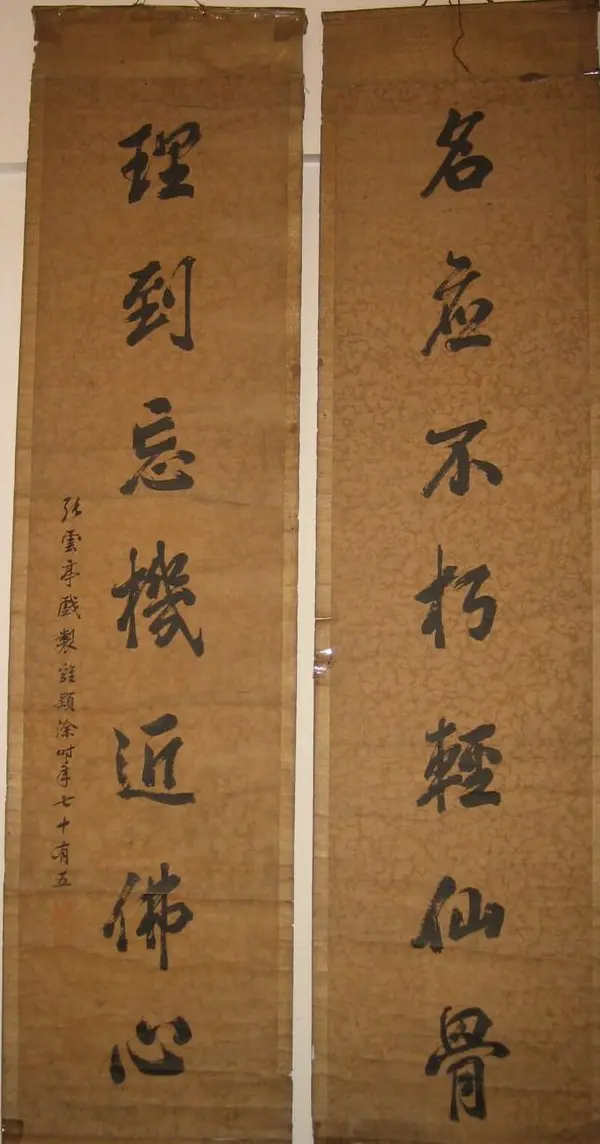 名应不朽輕仙骨
理到忘機近佛心
張雲亭戲製 顥涂時年七十有五